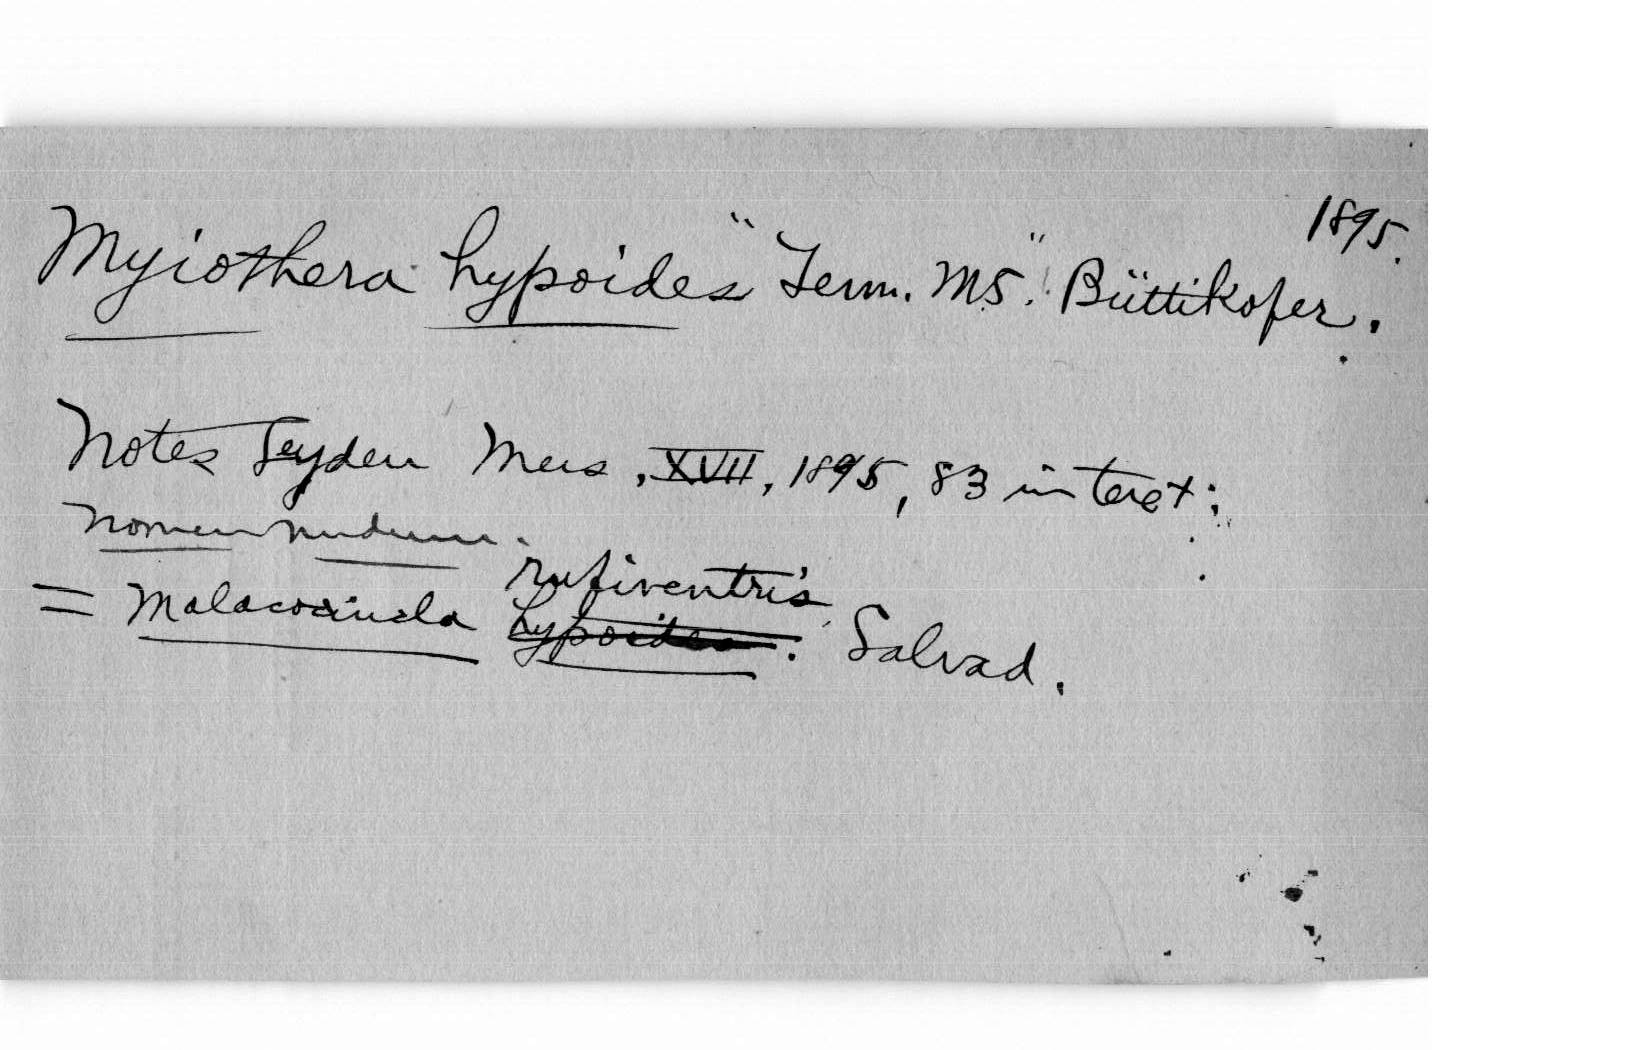 1895.
Myiothera hypoides "Tem. MS." Büttikofer.
Notes Leyden Mus., XVII, 1895, 83 in text;
nomen nudum.
rufiventris
= Malacocincla hypoides. Salvad.